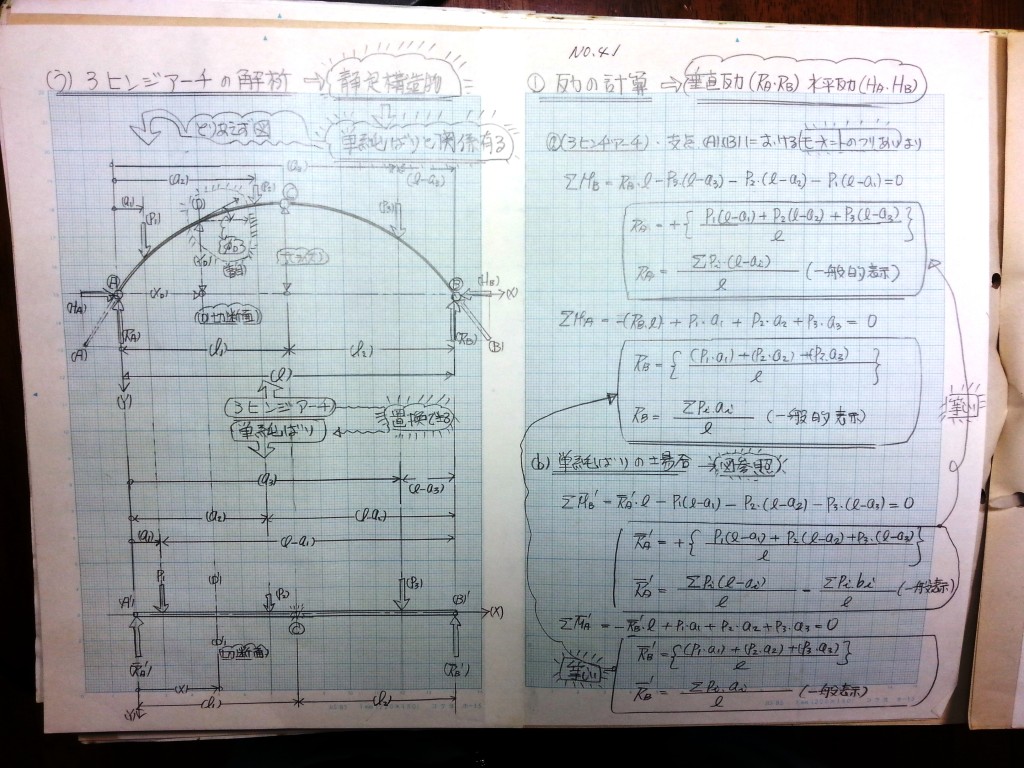 (う) 3ヒンジアーチの解析 → 静定構造物
とりあえず図
単純ばりと関係有る
(a3)
(l-a3)
(a2)
(a1)
(P1)
(P2)
(P3)
(D)
(C)
(A)
(B)
(HA)
(HB)
(X)
(XD)
(D切断面)
(RA)
(RB)
(A)
(B)
(l1)
(l2)
(l)
(Y)
3ヒンジアーチ
単純ばり
置換できる
(a3)
(l-a3)
(a2)
(l-a2)
(a1)
(l-a1)
P1
(P2)
(P3)
(A)'
(D)'
(C)
(B)'
(X)
(切断面)
(R̅A')
(R̅B')
(l1)
(l2)
(Y)
NO.41
① 反力の計算 ⇒ 垂直反力(RA・RB) 水平反力(HA・HB)
(a)(3ヒンヂアーチ)・支点(A)(B)における モーメントのつりあいより
ΣMB = RA・l - P3・(l-a3) - P2・(l-a2) - P1(l-a1) = 0
RA = +{ P1(l-a1) + P2(l-a2) + P3(l-a3) / l }
RA = ΣPi・(l-ai) / l (一般的表示)
ΣMA = -(RB・l) + P1・a1 + P2・a2 + P3・a3 = 0
RB = { (P1・a1) + (P2・a2) + (P3・a3) / l }
RB = ΣPi ai / l (一般的表示)
等しい
(b) 単純ばりの場合 → 図参照
ΣM̅B' = R̅A'・l - P1(l-a1) - P2・(l-a2) - P3・(l-a3) = 0
R̅A' = +{ P1(l-a1) + P2(l-a2) + P3・(l-a3) / l }
R̅A' = ΣPi(l-ai) / l = ΣPi bi / l (一般表示)
ΣM̅A' = -R̅B'・l + P1・a1 + P2・a2 + P3・a3 = 0
等しい
R̅B' = {(P1・a1) + (P2・a2) + (P3・a3) / l }
R̅B' = ΣPi・ai / l (一般表示)